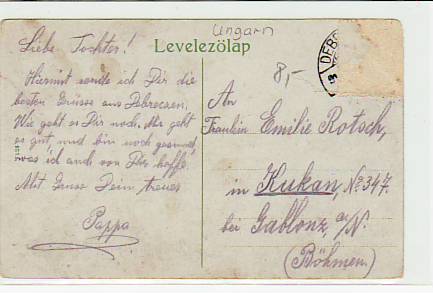 Ungarn
Levelezőlap
8,-
DEBR
Liebe Tochter!
Hiermit sende ich Dir die
besten Grüsse aus Debreczen.
Wie geht es Dir noch, Mir geht
es gut, und bin noch gesund,
was ich auch von Dir hoffe.
Mit Gruss Dein treuer
Pappa
An
Fräulein Emilie Rotsch,
in Kukan, No. 347.
bei Gablonz, a/N.
(Böhmen.)